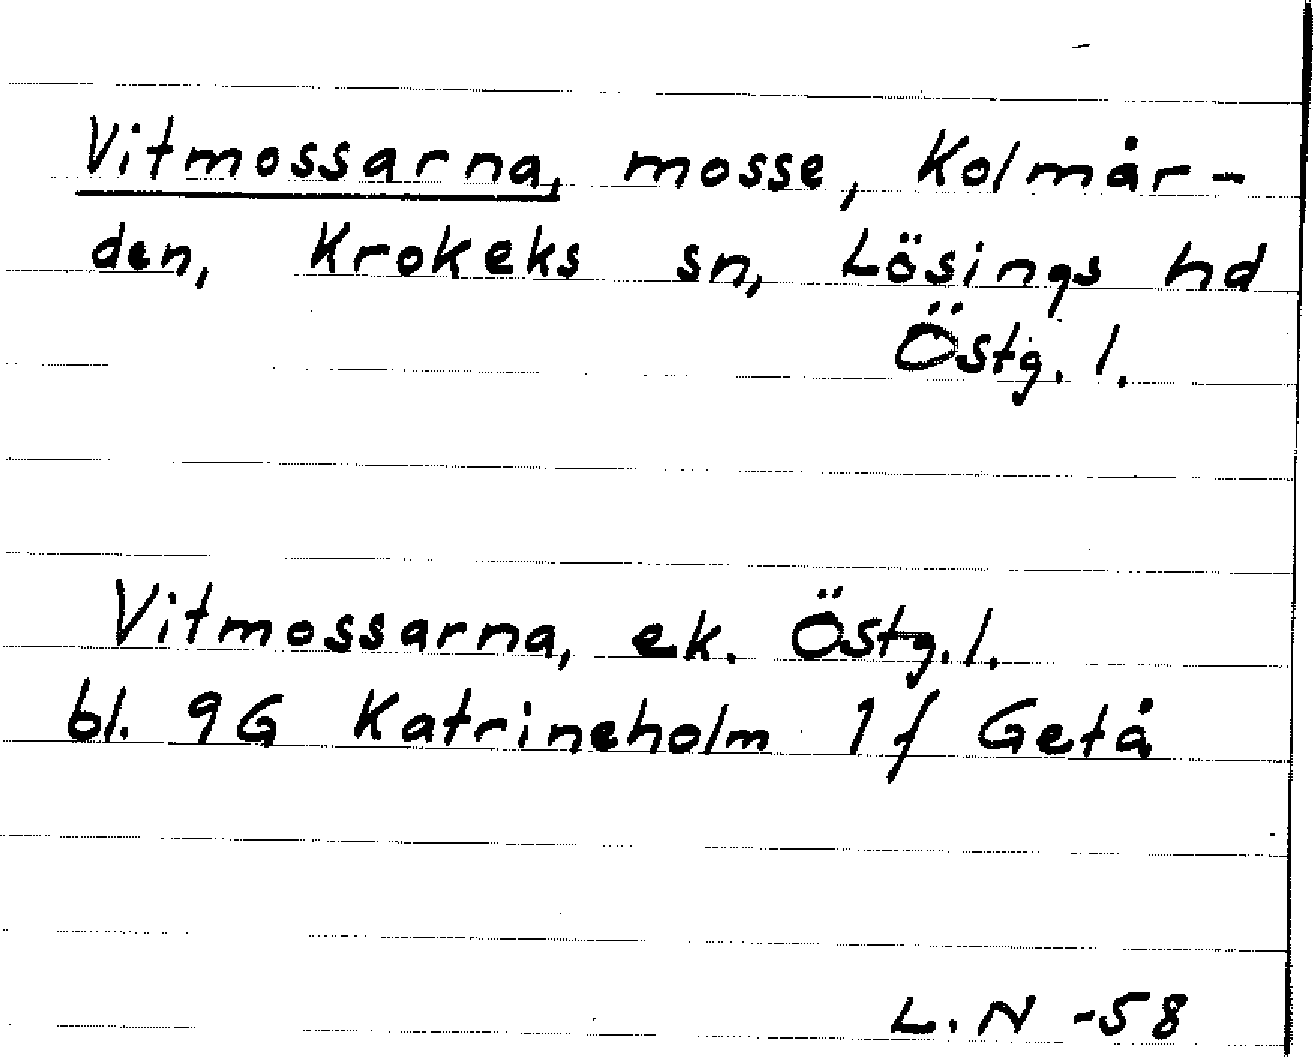 Vitmossarna, mosse, Kolmår-
den, Krokeks sn, Lösings hd
Östg. l.
Vitmossarna, ek. Östg. l.
bl. 9G Katrineholm 1 f Getå
L. N -58